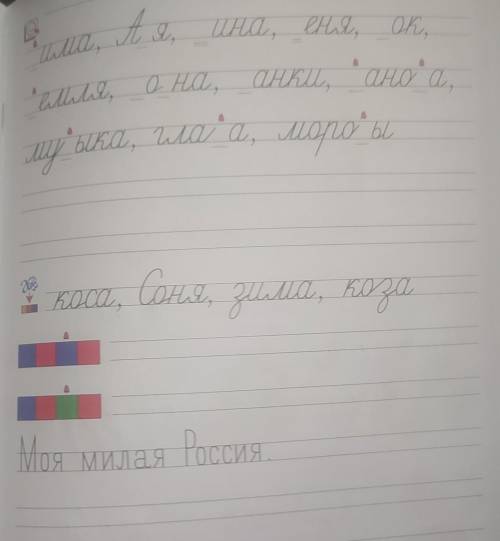 _има, А_я, _ина, _еня, _ок,
_емля, о_на, _анки, _ано_а,
му_ыка, гла_а, моро_ы
коса, Соня, зима, коза
Моя милая Россия.